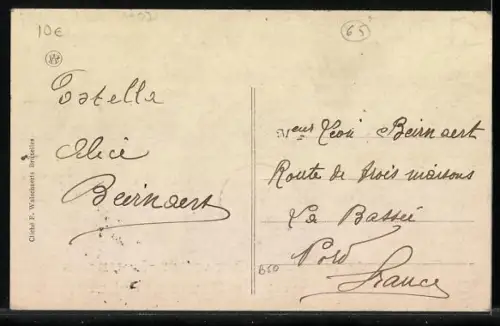 10€
65
Estella
Alice
Beirnaert
Mr Léon Beirnaert
Route de trois maisons
La Bassée
Nord
France
B50
Cliché F. Walschaerts Bruxelles